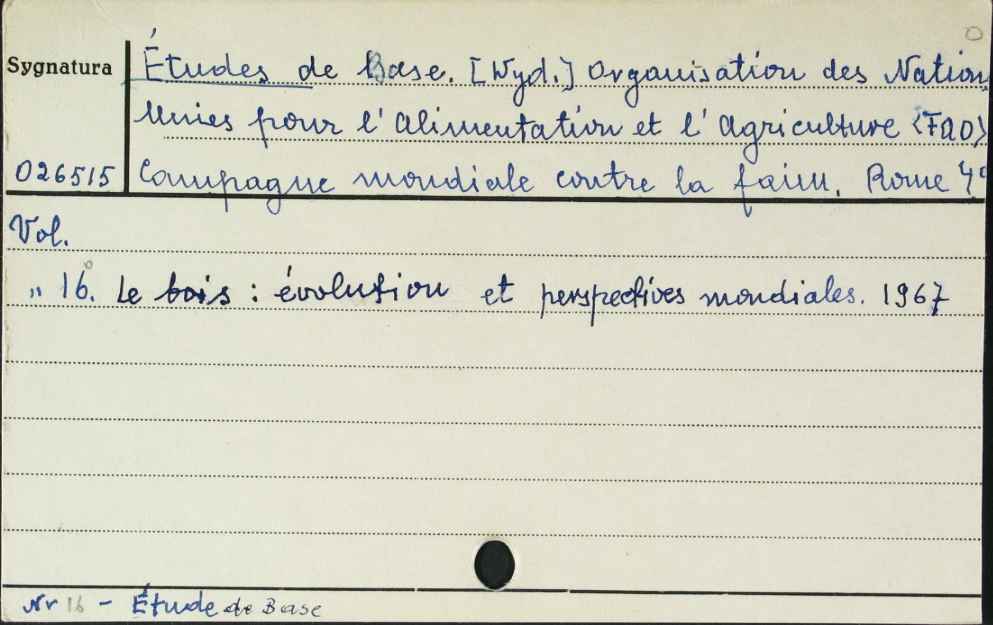 Sygnatura
Études de Base. [Wyd.] Organisation des Nations
Unies pour l'Alimentation et l'Agriculture <FAO>
026515 Campagne mondiale contre la faim. Rome 4°
Vol.
„ 16. Le bois : évolution et perspectives mondiales. 1967
Nr 16 - Étude de Base